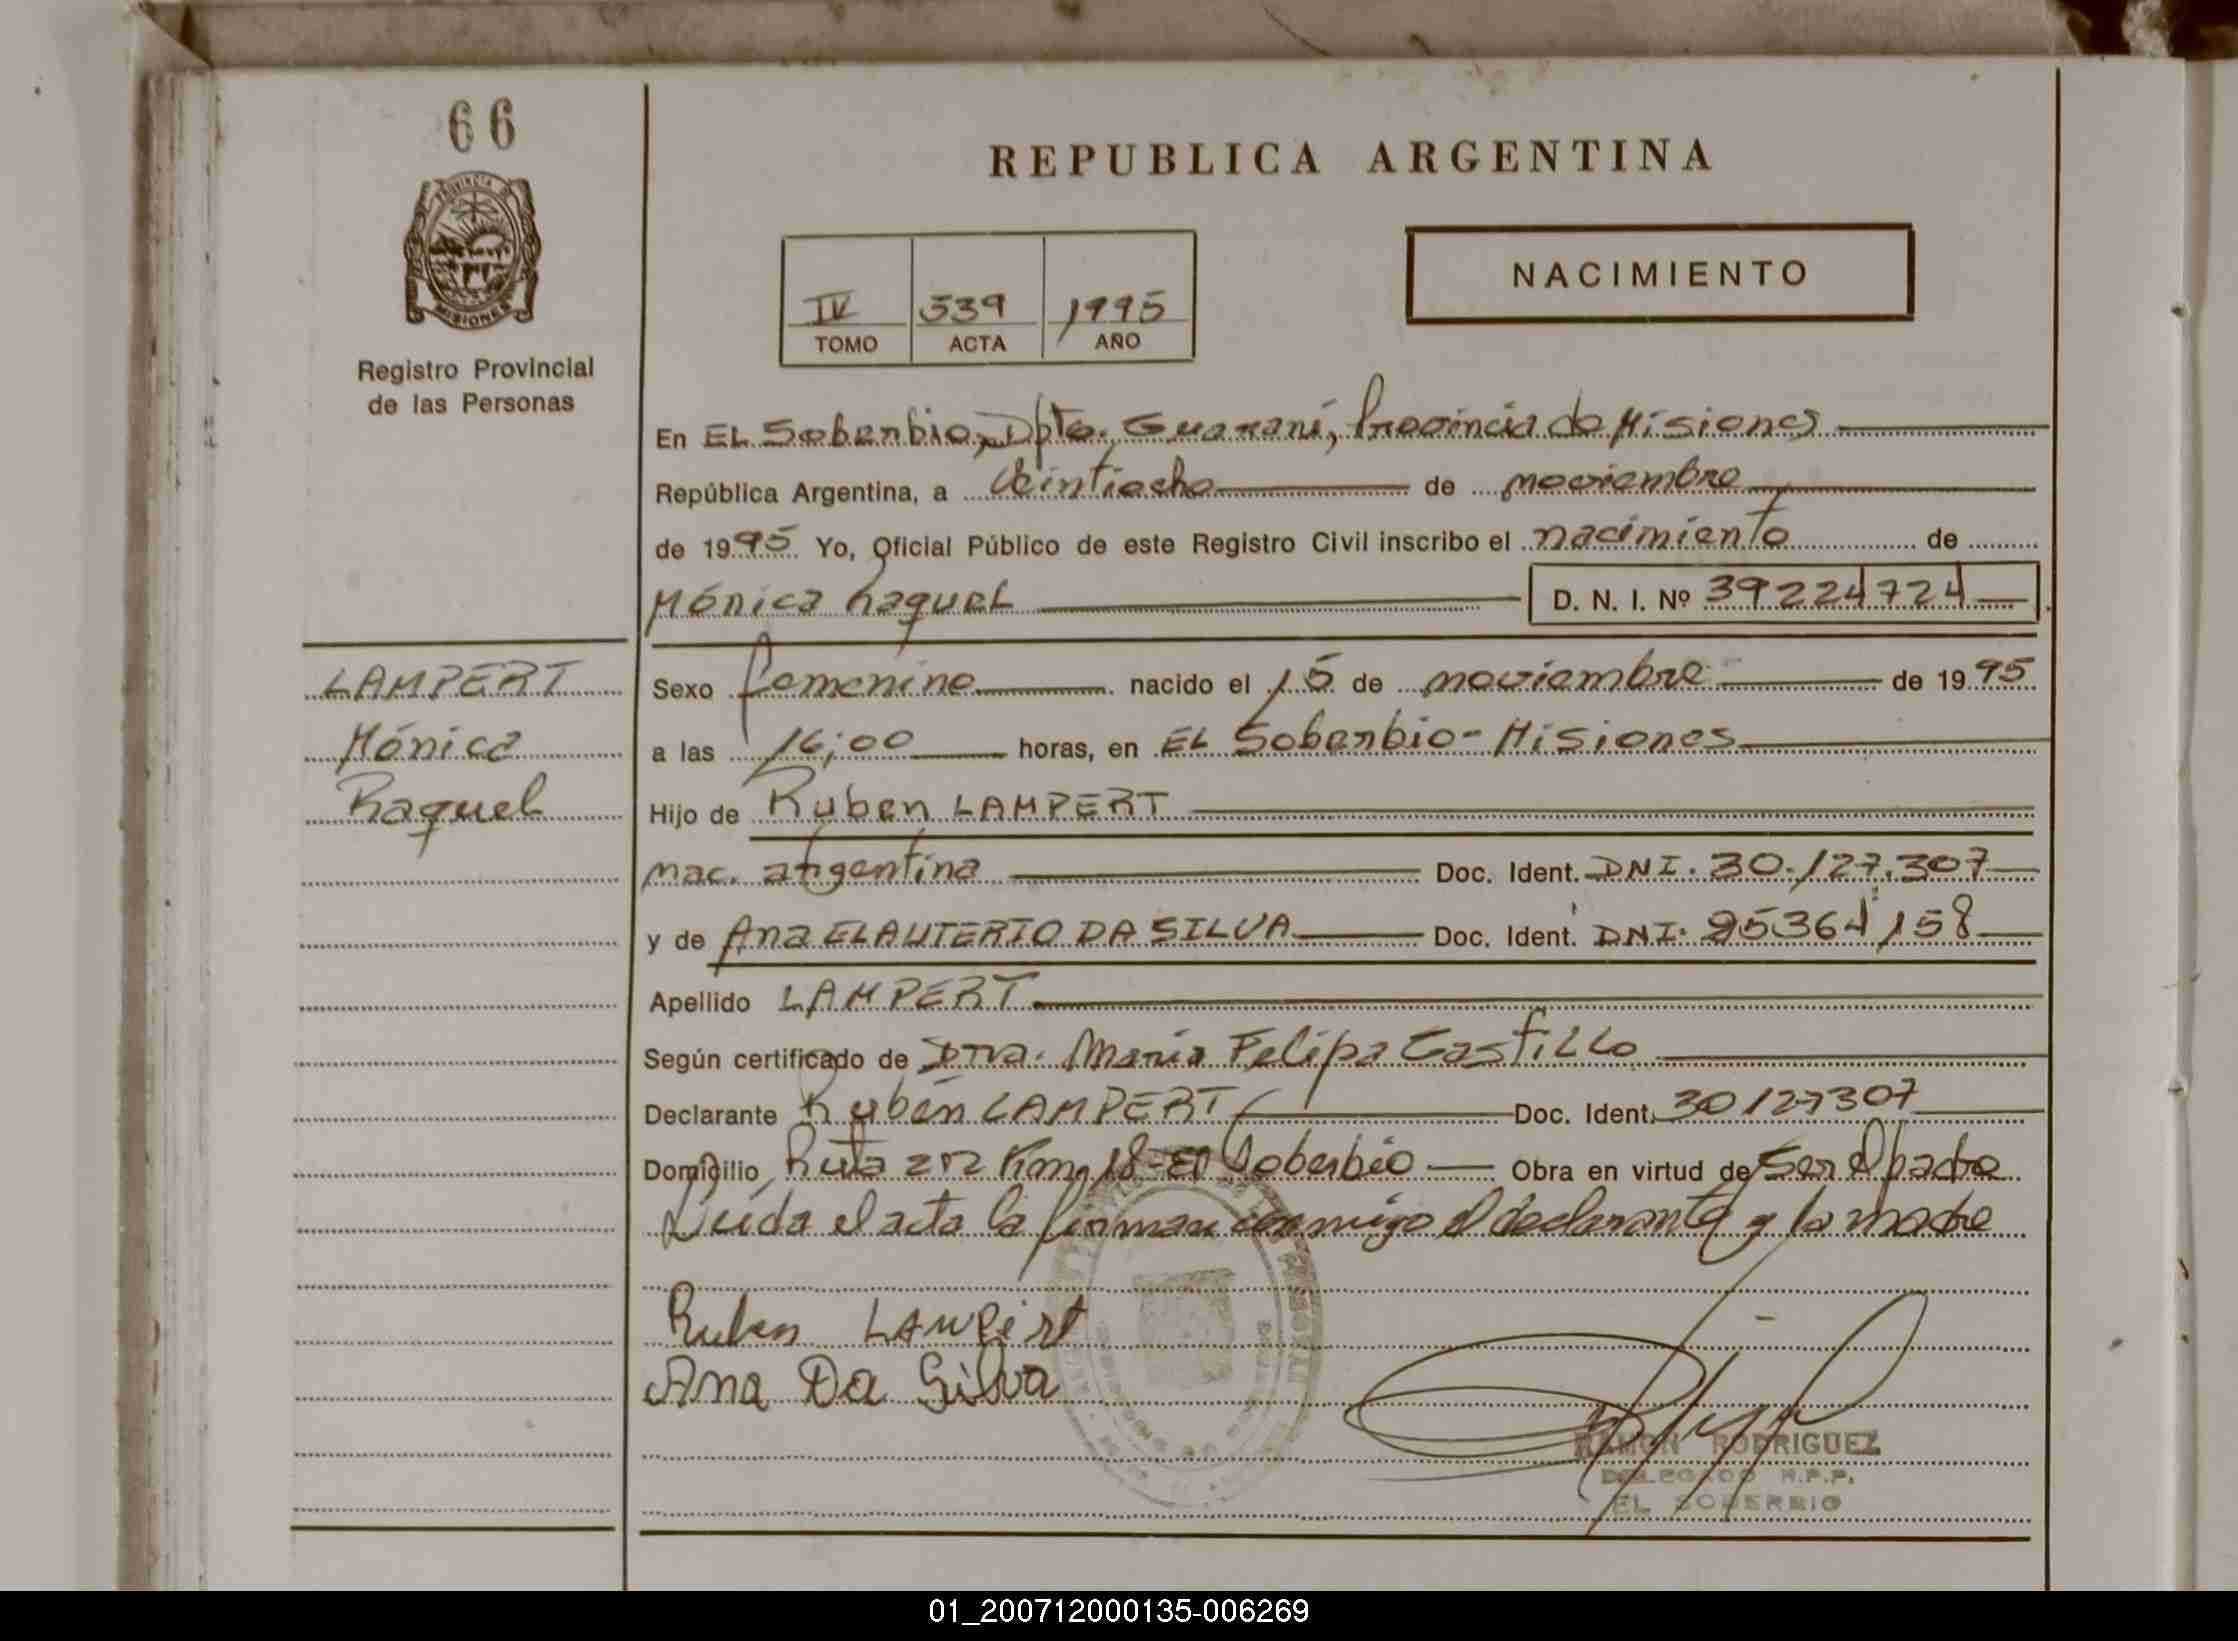 66
PROVINCIA DE
MISIONES
Registro Provincial
de las Personas
REPUBLICA ARGENTINA
NACIMIENTO
IV 539 1995
TOMO ACTA AÑO
En EL Soberbio, Dpto. Guaraní, Provincia de Misiones
República Argentina, a Veintiocho de noviembre
de 1995 Yo, Oficial Público de este Registro Civil inscribo el nacimiento de
Mónica Raquel D. N. I. Nº 39224724
LAMPERT
Mónica
Raquel
Sexo femenino nacido el 15 de noviembre de 1995
a las 16;00 horas, en EL Soberbio - Misiones
Hijo de Ruben LAMPERT
nac. argentina Doc. Ident. DNI. 30.127.307
y de Ana ELAUTERIO DA SILVA Doc. Ident. DNI. 95364158
Apellido LAMPERT
Según certificado de Dra. Maria Felipa Castillo
Declarante Rubén LAMPERT Doc. Ident. 30127307
Domicilio Ruta Km. 18 - El Soberbio Obra en virtud de Ser el padre
Leída el acta la firman conmigo el declarante y la madre
Ruben LAMPERT
Ana Da Silva
RAMON RODRIGUEZ
DELEGADO R.P.P.
EL SOBERBIO
01_200712000135-006269